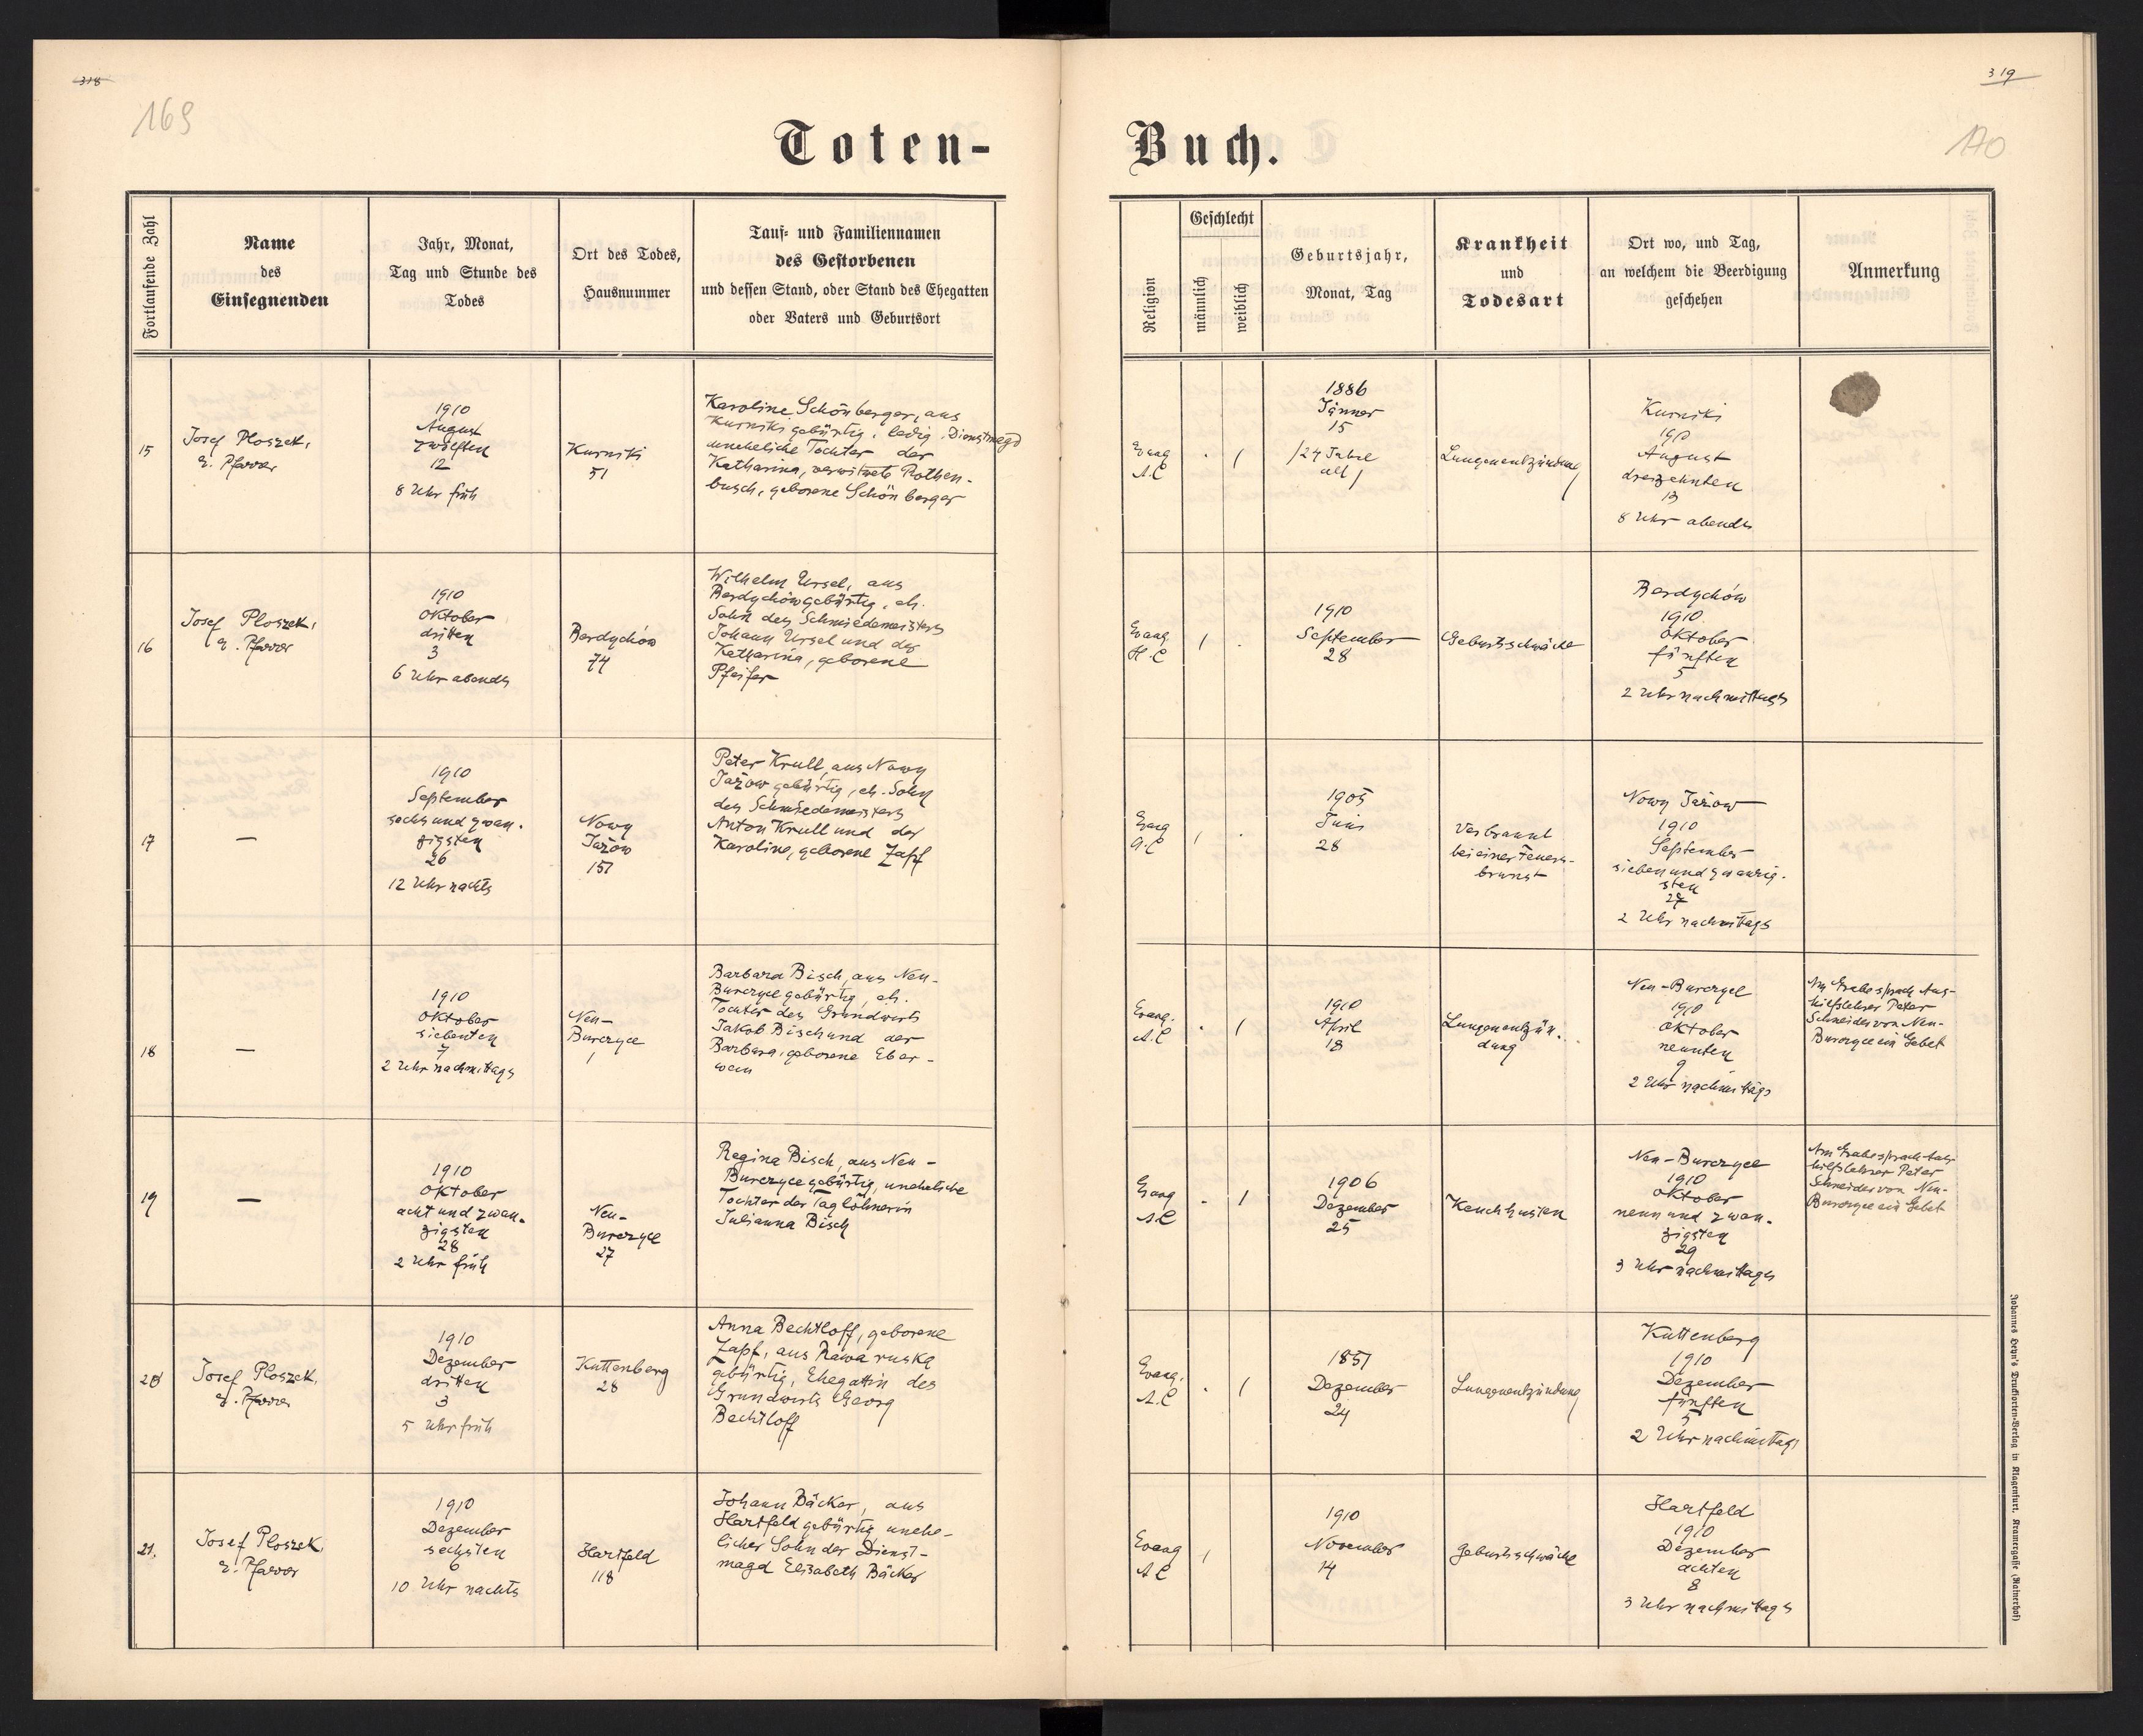 318
319
169
170
Toten-
Buch.
Fortlaufende Zahl
Name
des
Einsegnenden
Jahr, Monat,
Tag und Stunde des
Todes
Ort des Todes,
Hausnummer
Tauf- und Familiennamen
des Gestorbenen
und dessen Stand, oder Stand des Ehegatten
oder Vaters und Geburtsort
Religion
Geschlecht
männlich
weiblich
Geburtsjahr,
Monat, Tag
Krankheit
und
Todesart
Ort wo, und Tag,
an welchem die Beerdigung
geschehen
Anmerkung
15
Josef Ploszek,
e. Pfarrer
1910
August
zwölften
12
8 Uhr früh
Kurniki
51
Karoline Schönberger, aus
Kurniki gebürtig, ledig, Dienstmagd
uneheliche Tochter der
Katharina, verwitwete Rothen-
busch, geborene Schönberger
Evang
A.C
. /
1886
Jänner
15
/24 Jahre
alt/
Lungenentzündung
Kurniki
1910
August
dreizehnten
13
8 Uhr abends
16
Josef Ploszek,
e. Pfarrer
1910
Oktober
dritten
3
6 Uhr abends
Berdychów
74
Wilhelm Ursel, aus
Berdychów gebürtig, eh.
Sohn des Schmiedemeisters
Johann Ursel und der
Katharina, geborene
Pfeifer
Evang
H.C
/ .
1910
September
28
Geburtsschwäche
Berdychów
1910
Oktober
fünften
5
2 Uhr nachmittags
17
—
1910
September
sechs und zwan-
zigsten
26
12 Uhr nachts
Nowy
Jażow
157
Peter Krull, aus Nowy
Jażow gebürtig, eh. Sohn
des Schmiedemeisters
Anton Krull und der
Karoline, geborene Zapf
Evang
A.C
/ .
1905
Juni
28
Verbrannt
bei einer Feuers-
brunst
Nowy Jażow
1910
September
sieben und zwanzig-
sten
27
2 Uhr nachmittags
18
—
1910
Oktober
siebenten
7
2 Uhr nachmittags
Neu-
Burczyce
1
Barbara Bisch, aus Neu-
Burczyce gebürtig, eh.
Tochter des Grundwirts
Jakob Bisch und der
Barbara, geborene Eber-
wein
Evang.
A.C
. /
1910
April
18
Lungenentzün-
dung
Neu-Burczyce
1910
Oktober
neunten
9
2 Uhr nachmittags
Am Grabe sprach Aus-
hilfslehrer Peter
Schneider von Neu-
Burczyce ein Gebet
19
—
1910
Oktober
acht und zwan-
zigsten
28
2 Uhr früh
Neu-
Burczyce
27
Regina Bisch, aus Neu-
Burczyce gebürtig, uneheliche
Tochter der Taglöhnerin
Julianna Bisch
Evang
A.C
. /
1906
Dezember
25
Keuchhusten
Neu-Burczyce
1910
Oktober
neun und zwan-
zigsten
29
3 Uhr nachmittags
Am Grabe sprach Aus-
hilfslehrer Peter
Schneider von Neu-
Burczyce ein Gebet
20
Josef Ploszek,
e. Pfarrer
1910
Dezember
dritten
3
5 Uhr früh
Kuttenberg
28
Anna Bechtloff, geborene
Zapf, aus Rawa ruska
gebürtig, Ehegattin des
Grundwirts Georg
Bechtloff
Evang.
A.C
. /
1851
Dezember
24
Lungenentzündung
Kuttenberg
1910
Dezember
fünften
5
2 Uhr nachmittags
21.
Josef Ploszek,
e. Pfarrer
1910
Dezember
sechsten
6
10 Uhr nachts
Hartfeld
118
Johann Bäcker, aus
Hartfeld gebürtig unehe-
licher Sohn der Dienst-
magd Elisabeth Bäcker
Evang
A.C
/
1910
November
14
Geburtsschwäche
Hartfeld
1910
Dezember
achten
8
3 Uhr nachmittags
Johannes Heyn's Drucksorten-Verlag in Klagenfurt, Kramergasse (Rainerhof)